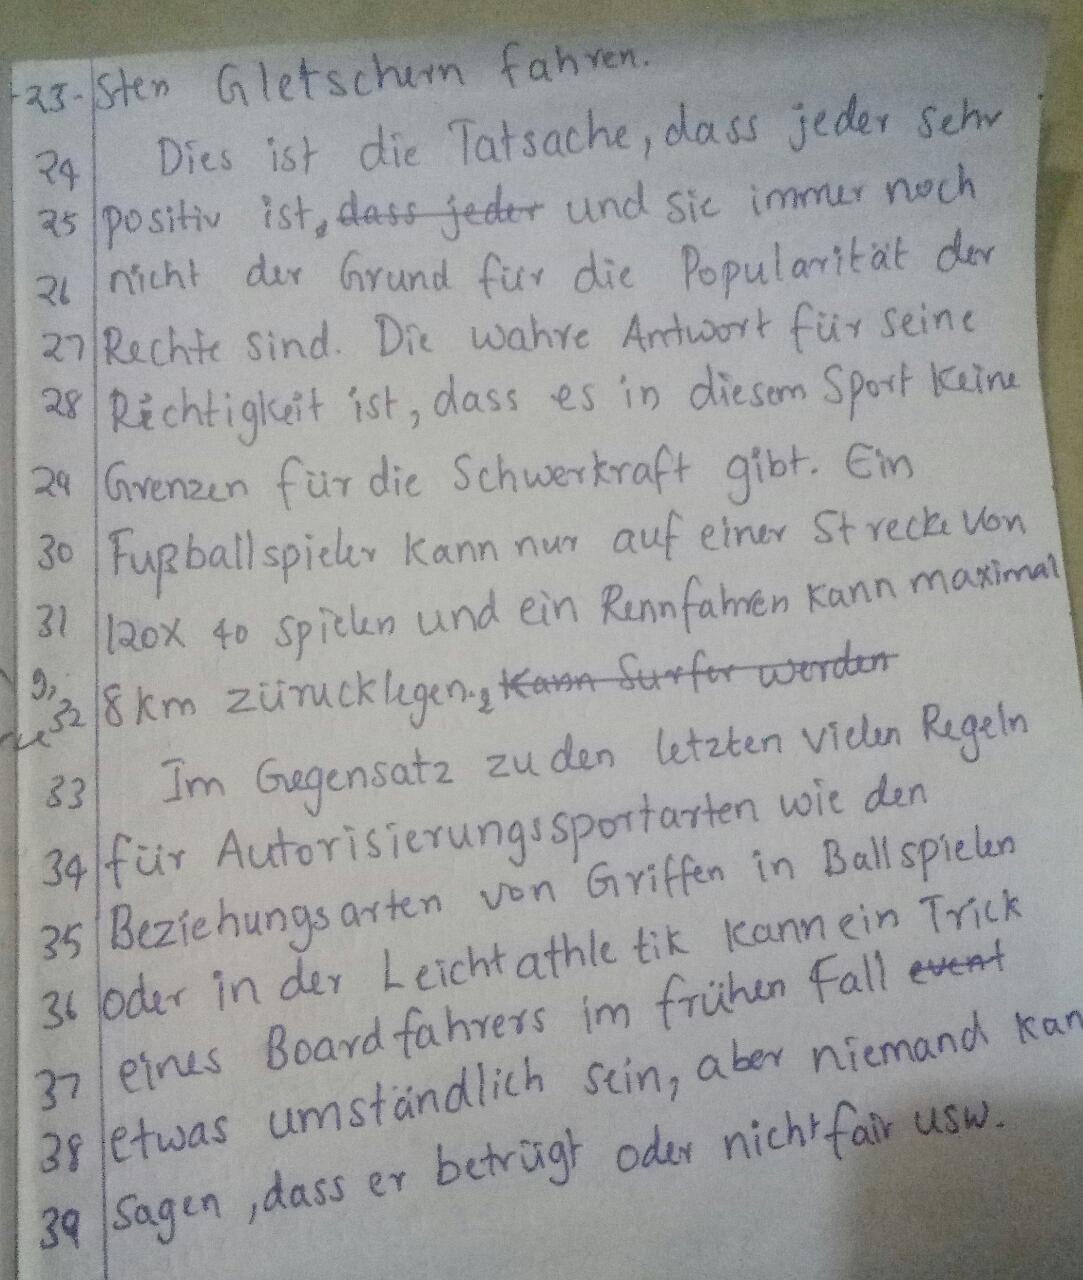 23. sten Gletschern fahren.
24 Dies ist die Tatsache, dass jeder sehr
25 positiv ist, dass jeder und sie immer noch
26 nicht der Grund für die Popularität der
27 Rechte sind. Die wahre Antwort für seine
28 Richtigkeit ist, dass es in diesem Sport keine
29 Grenzen für die Schwerkraft gibt. Ein
30 Fußballspieler kann nur auf einer Strecke von
31 120x 40 spielen und ein Rennfahren kann maximal
9,
32 8 km zürucklegen. Kann Surfer werden
33 Im Gegensatz zu den letzten vielen Regeln
34 für Autorisierungssportarten wie den
35 Beziehungsarten von Griffen in Ballspielen
36 oder in der Leichtathletik kann ein Trick
37 eines Boardfahrers im frühen Fall event
38 etwas umständlich sein, aber niemand kan
39 sagen, dass er betrügt oder nicht fair usw.